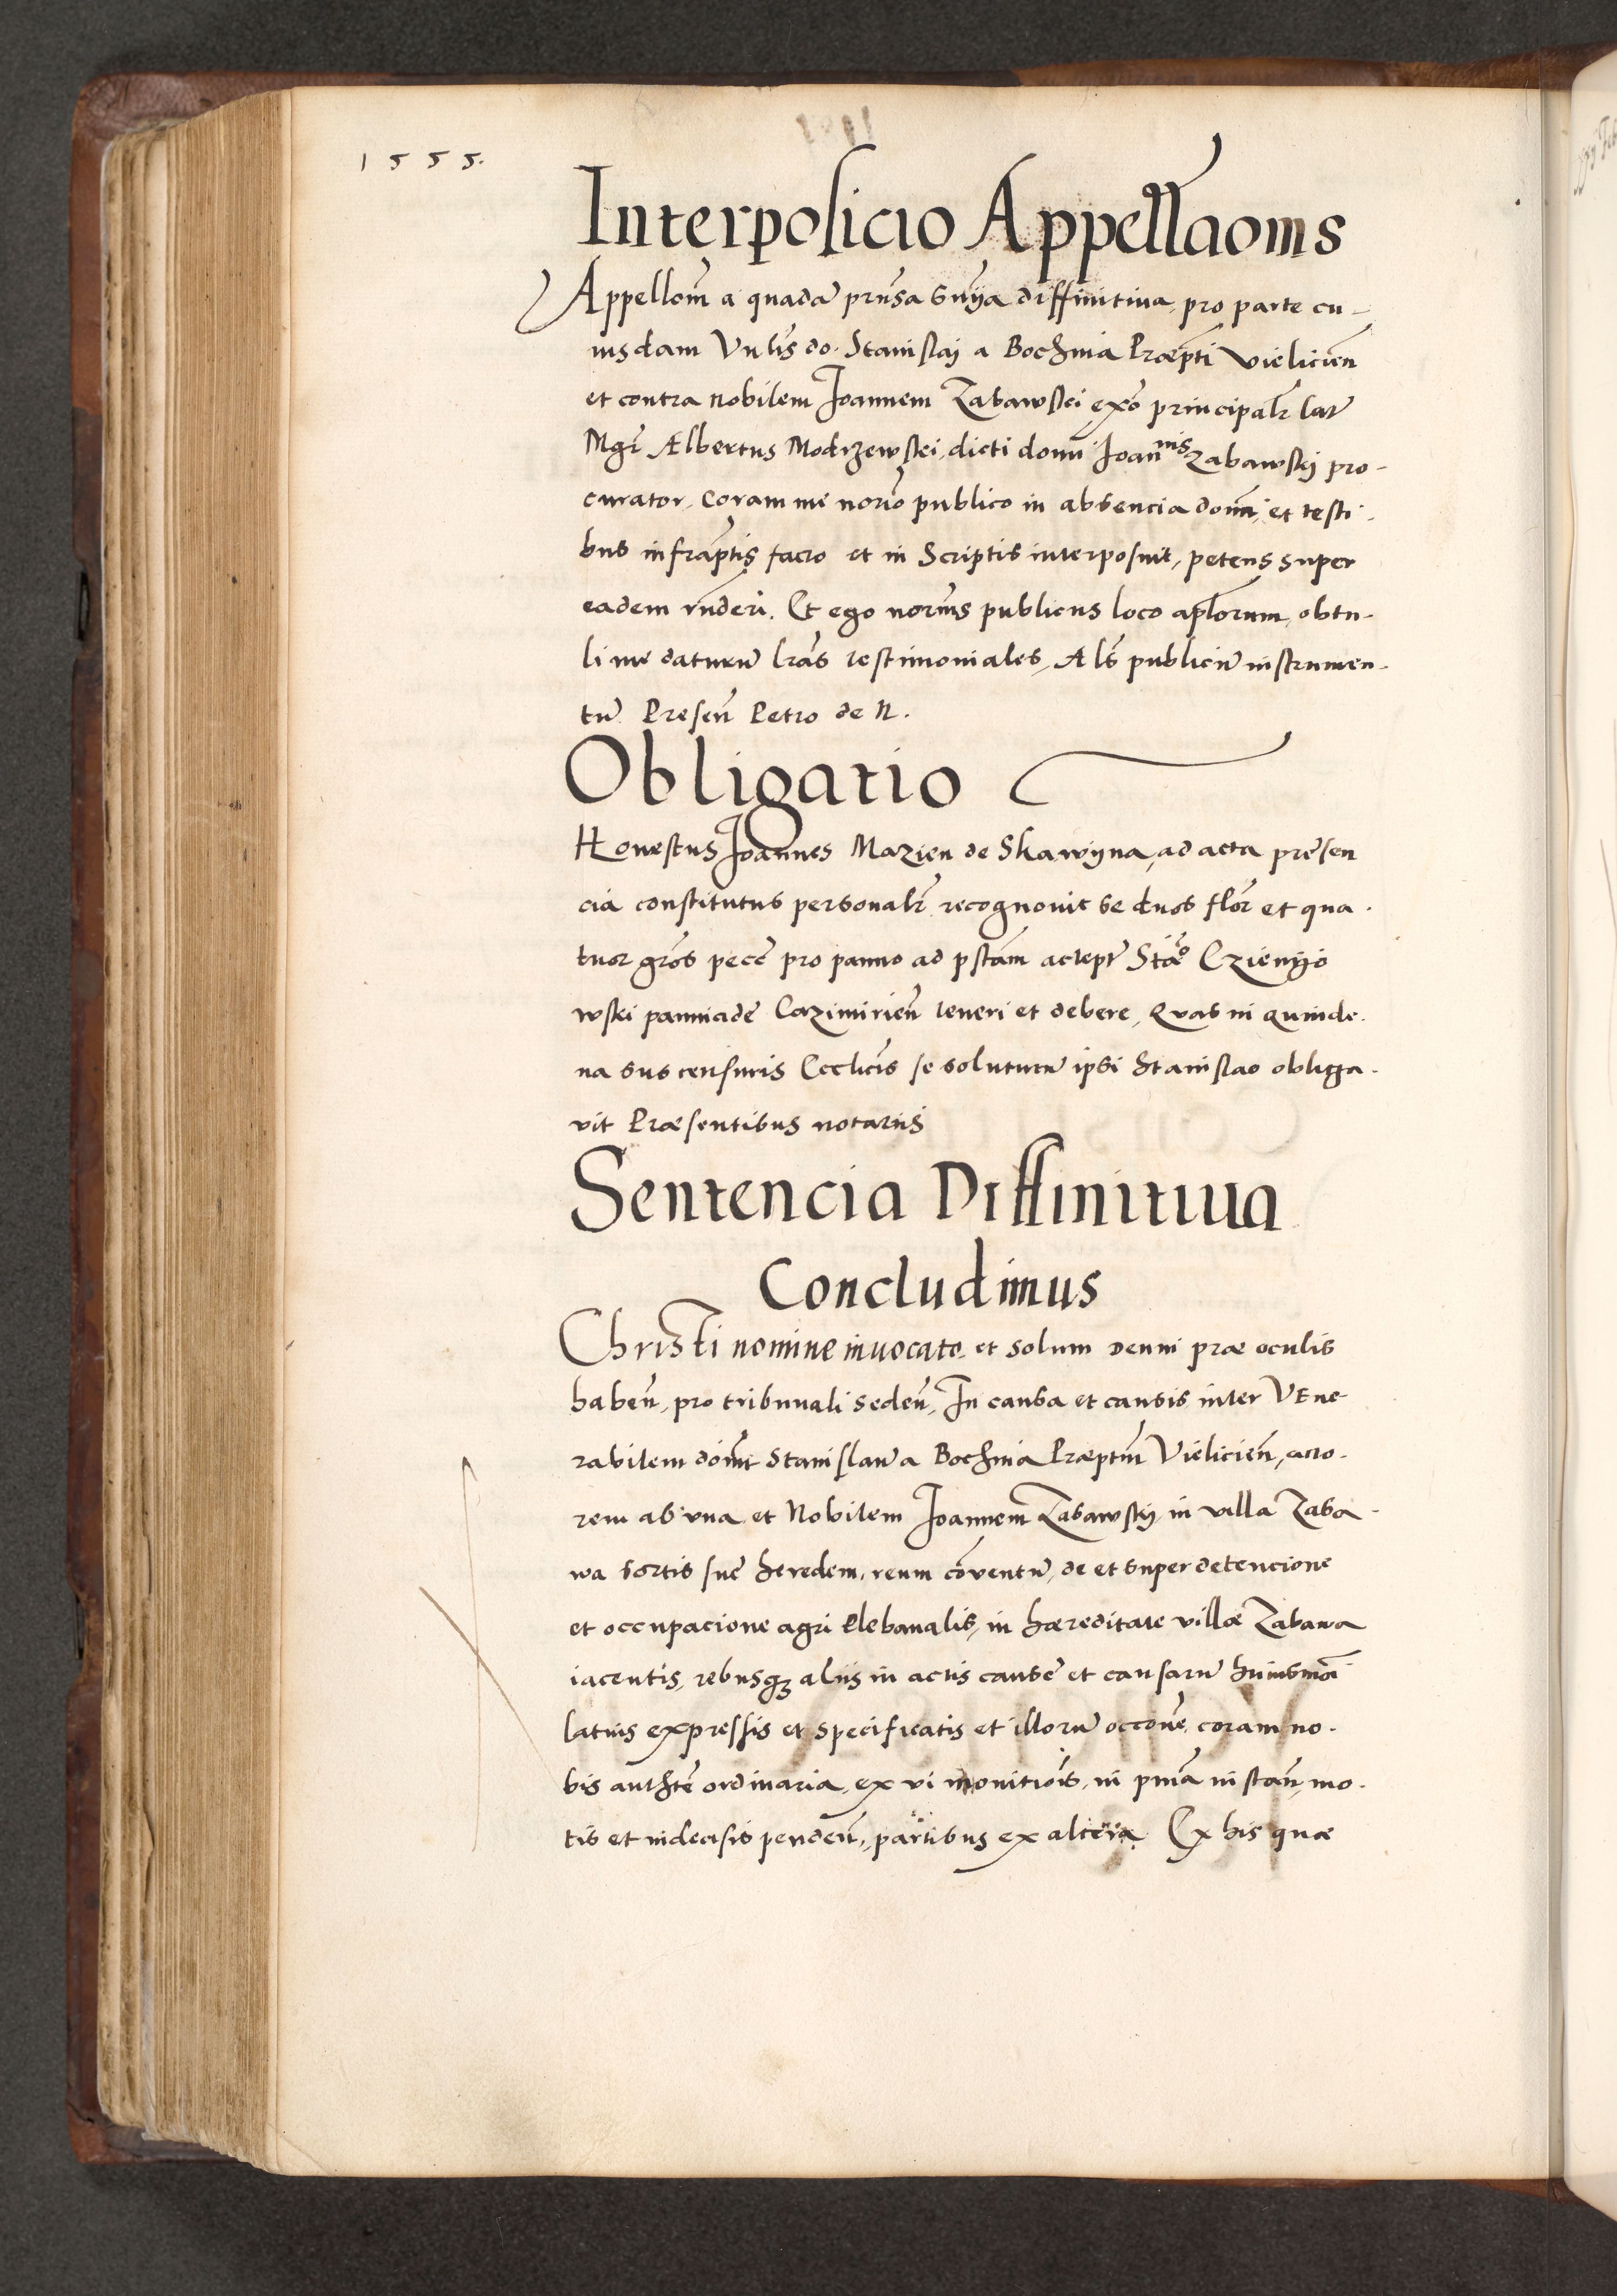 1555.
Interposicio Appellaoms
Appellom̃ a quadā prñsa snÿa diffinitiua, pro parte cu-
iusdam Vnlis do. Stanislaj a Bochnia Præpti Vielicien̄
et contra nobilem Joannem Zabawski exō principalr lat̄
Mgr̄ Albertus Modrzewski, dicti domi Joannis Zabawskj pro-
curator, Coram me norio publico in absencia domi, et testi-
bus infraptis facto et in Scriptis interposuit, petens super
eadem rnderi. Et ego norius publicus loco aplorum, obtu-
li me daturū lras testimoniales, Als publicū instrumen-
tū Presen̄ Petro de N.
Obligatio
Honestus Joannes Mazien de Skawyna, ad acta presen
cia constitutus personalr recognouit se duos flor et qua-
tuor gros pecc̄ pro panno ad pstam accept̄ Stāo Czienyo
wski pannicide Cazimirien̄ teneri et debere, Quas in quinde-
na sub censuris Ecclicis se soluturū ipsi Stanislao obliga-
vit Præsentibus notariis
Sentencia Diffinitiua
Concludimus
Christi nomine inuocato, et solum Deum præ oculis
haben̄, pro tribunali seden̄, In causa et causis inter VEne
rabilem dom̄ Stanislaū a Bochnia Præptm̄ Vielicien̄, acto-
rem ab vna, et Nobilem Joannem Zabawskÿ in villa Zaba-
wa sortis sue heredem, reum cōuentū, de et super detencione
et occupacione agri Plebanalis, in hæreditate villæ Zabawa
iacentis, rebusqz aliis in actis cause et causarū huiusmōi
latius expressis et specificatis et illorū occone, coram no-
bis authte ordinaria, ex vi monitiōis, in prima instan̄, mo-
tis et indecisis penden̄, partibus ex altera Ex his quæ